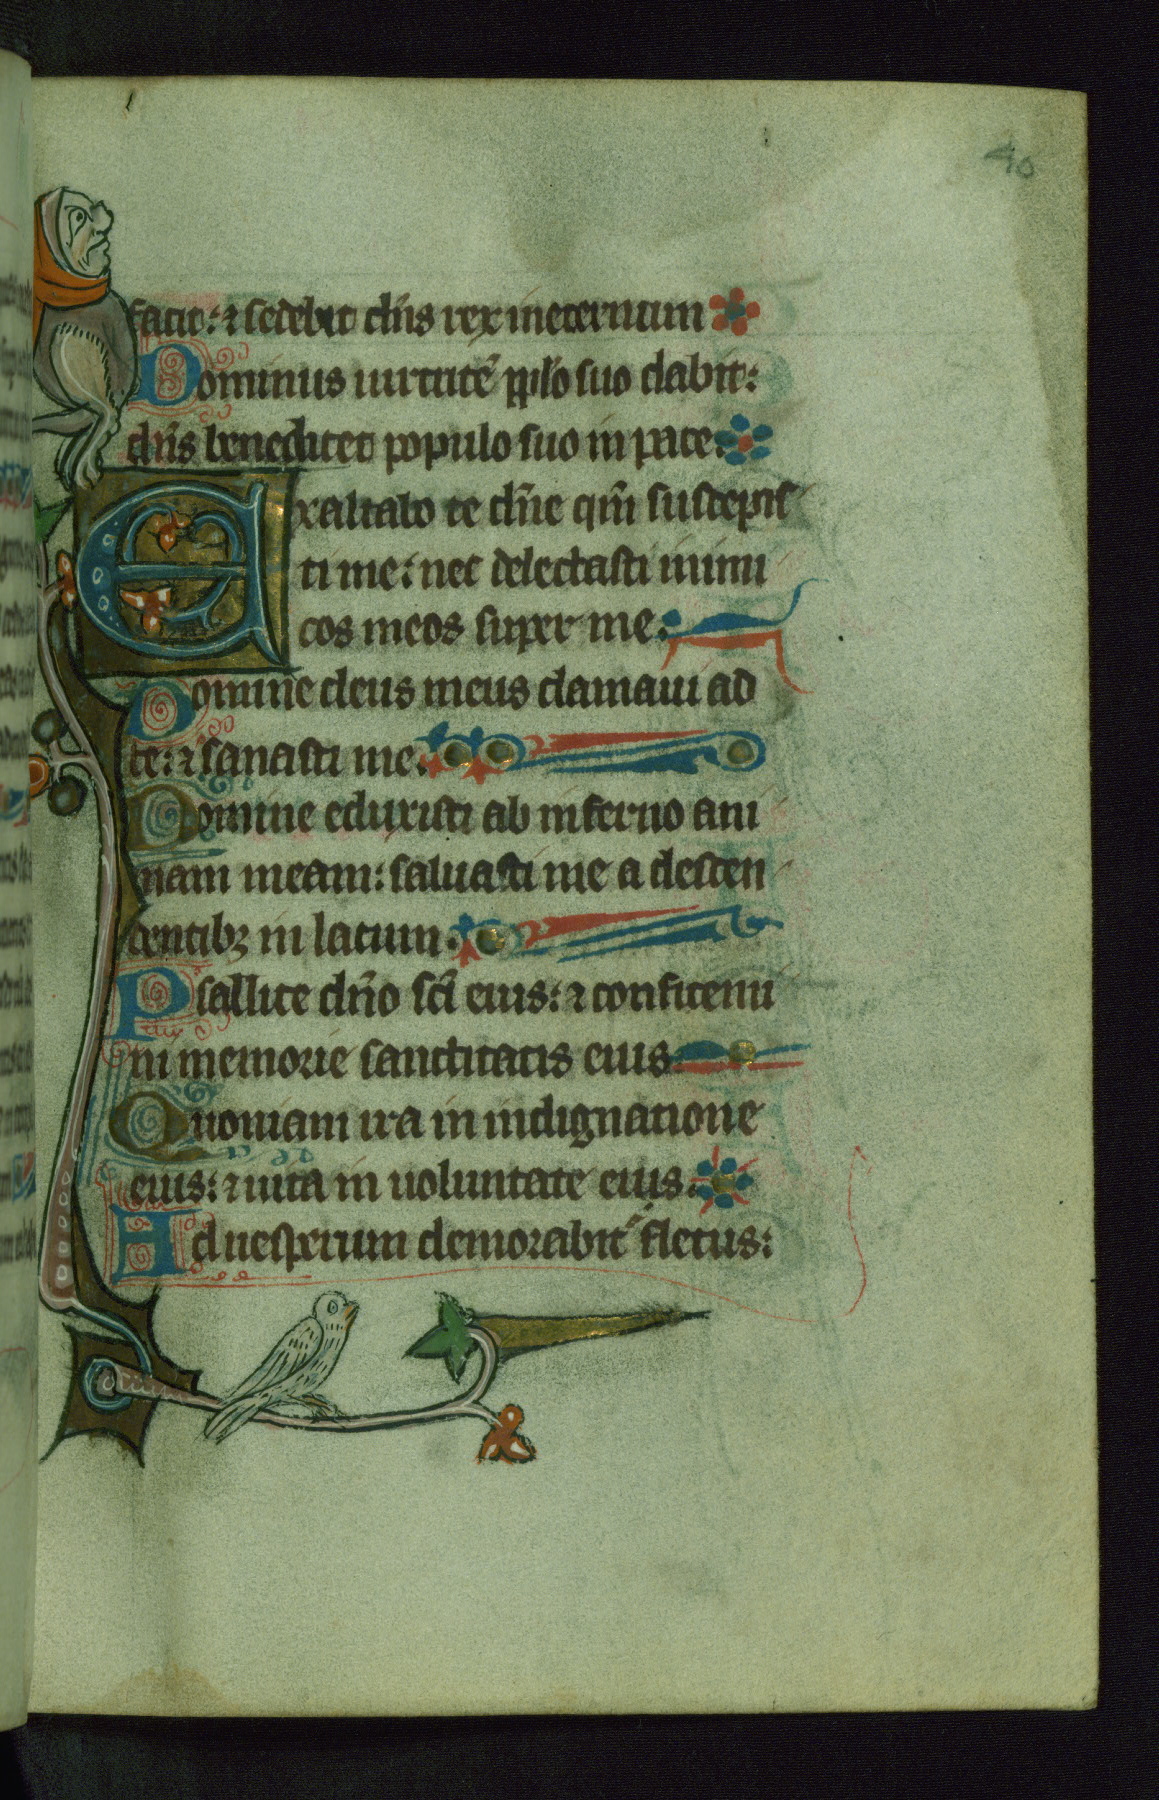 40
facit: ⁊ sedebit dn̄s rex in eternum
Dominus uirtutē pplo suo dabit:
dn̄s benedicet populo suo in pace.
Exaltabo te dn̄e qm̄ suscepis
ti me: nec delectasti inimi
cos meos super me.
Domine deus meus clamaui ad
te: ⁊ sanasti me.
Domine eduxisti ab inferno ani
mam meam: saluasti me a descen
dentibꝫ in lacum.
Psallite dn̄o sc̄i eius: ⁊ confitemi
ni memorie sanctitatis eius
Quoniam ira in indignatione
eius: ⁊ uita in uoluntate eius.
Ad uesperum demorabit᷑ fletus: